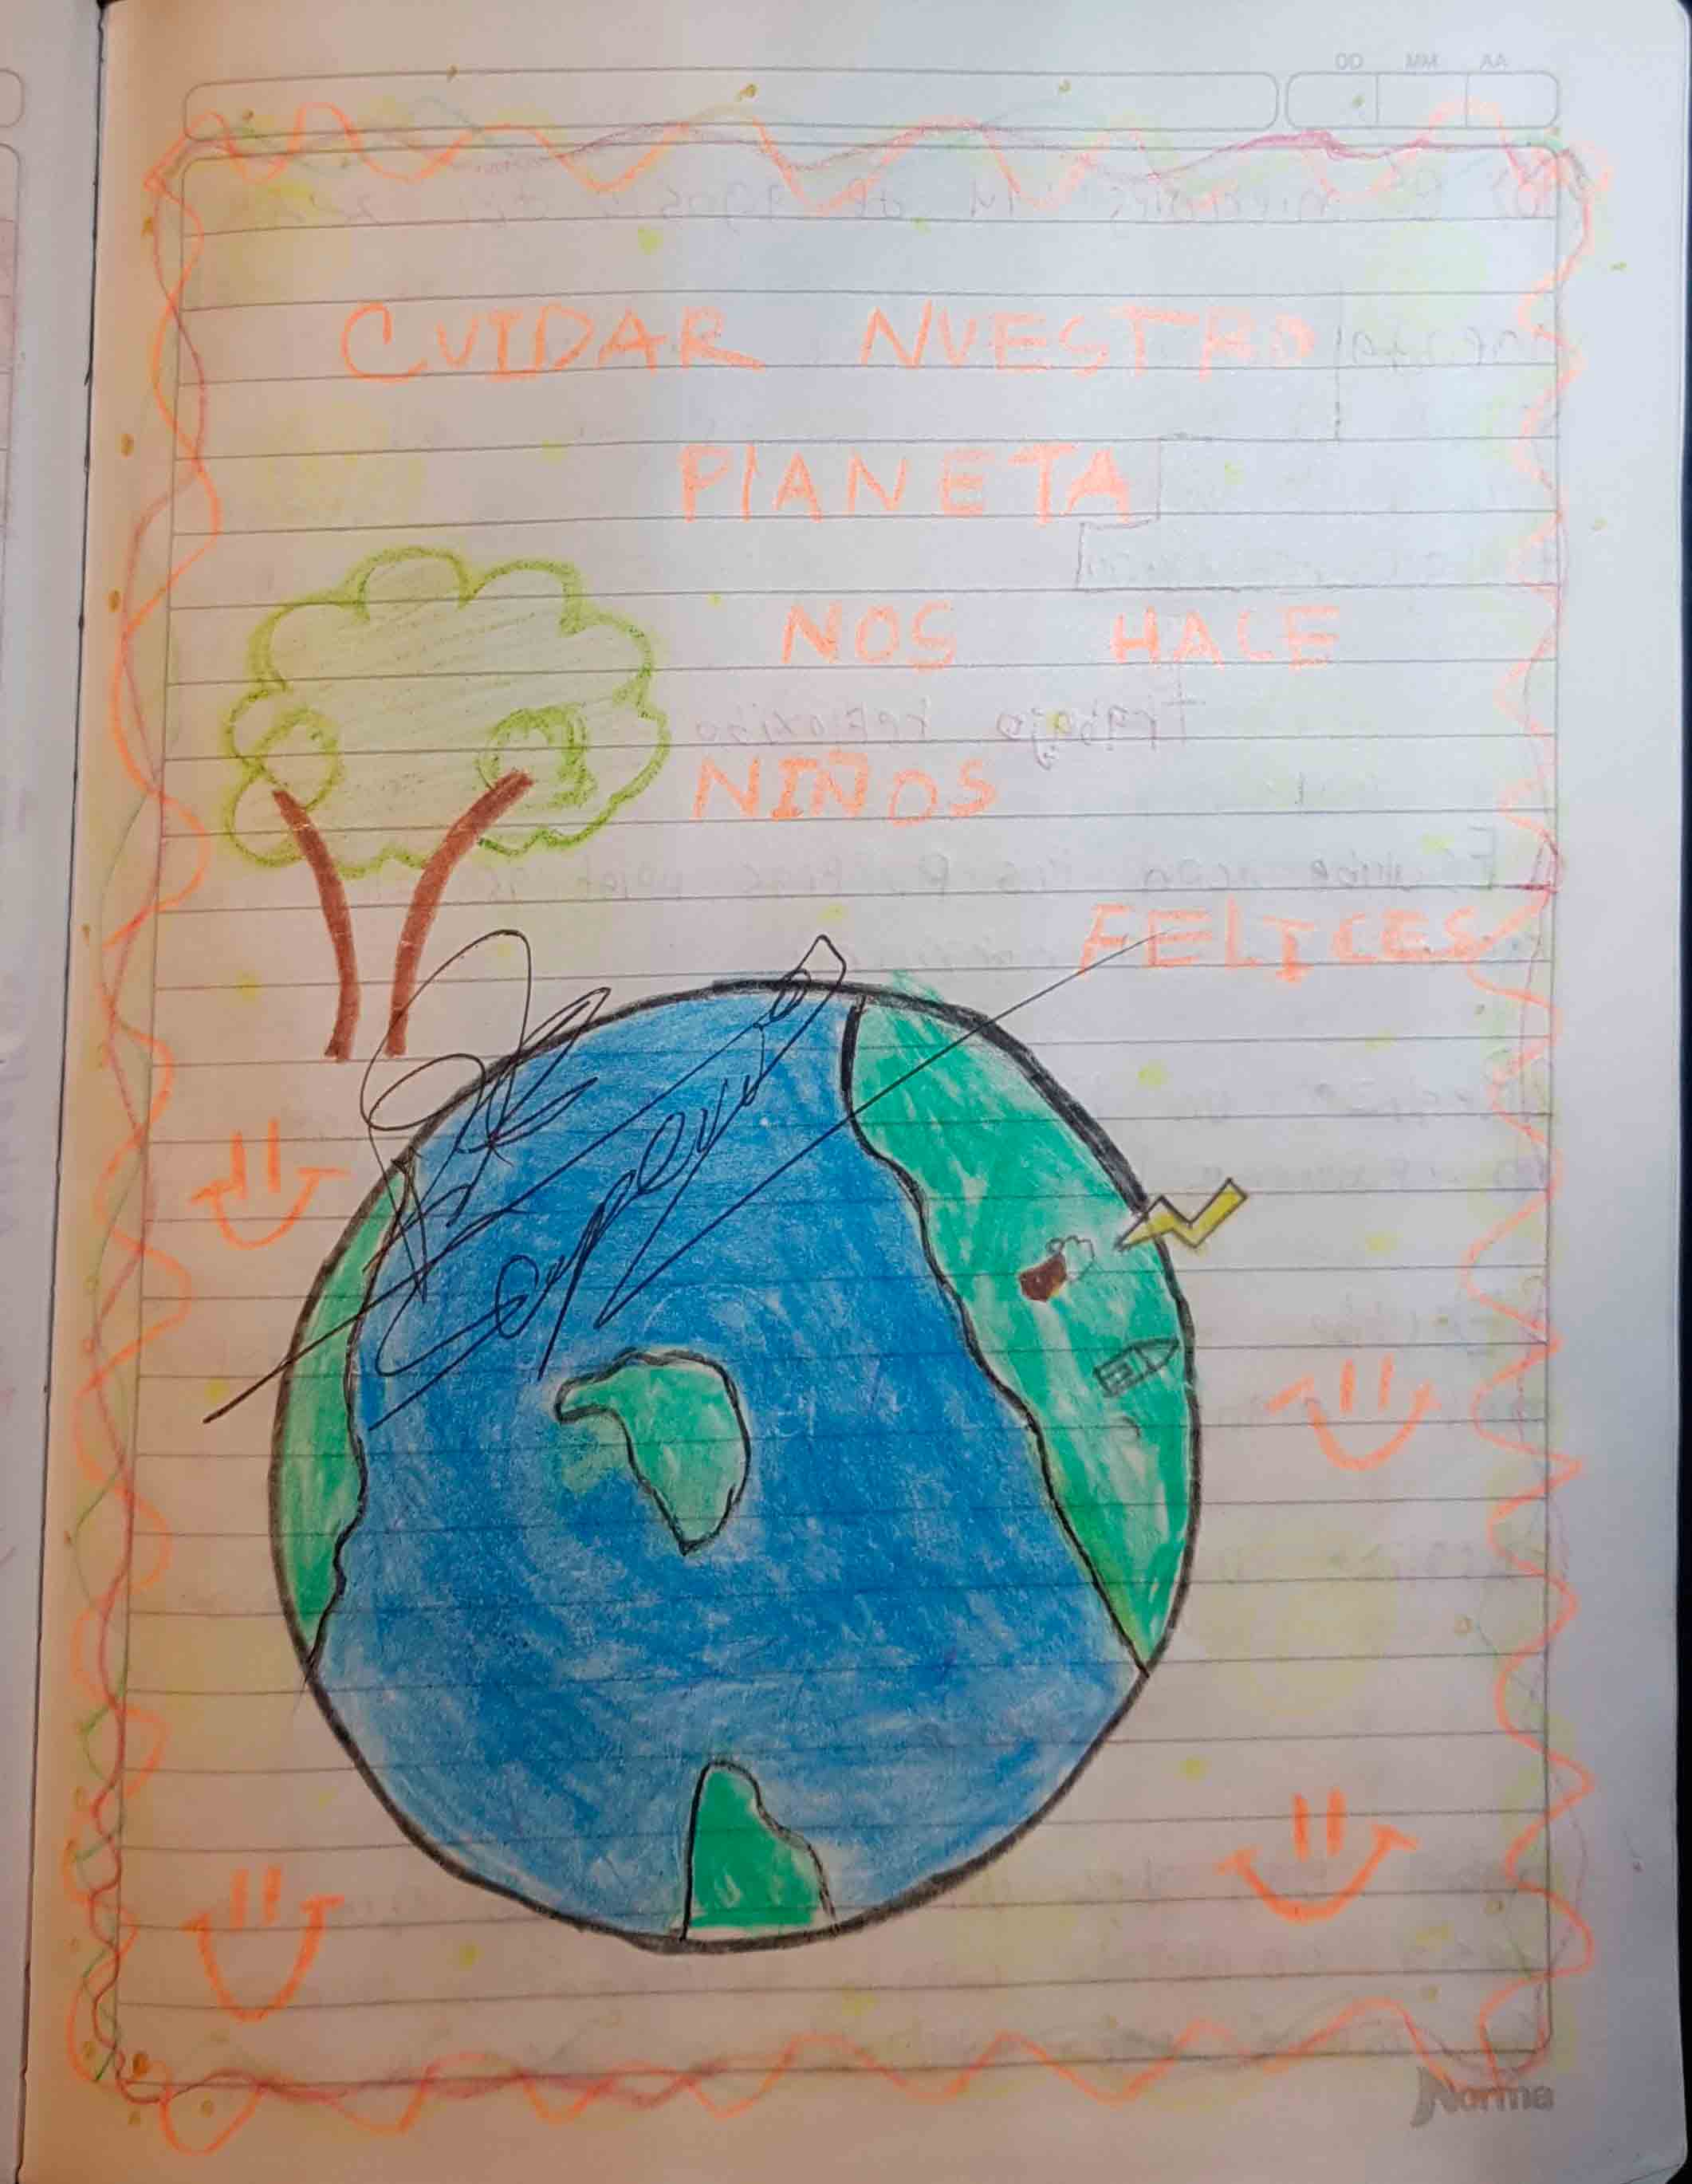 DD MM AA
CUIDAR NUESTRO
PlANETA
NOS HACE
NIÑOS
FELICES
Norma